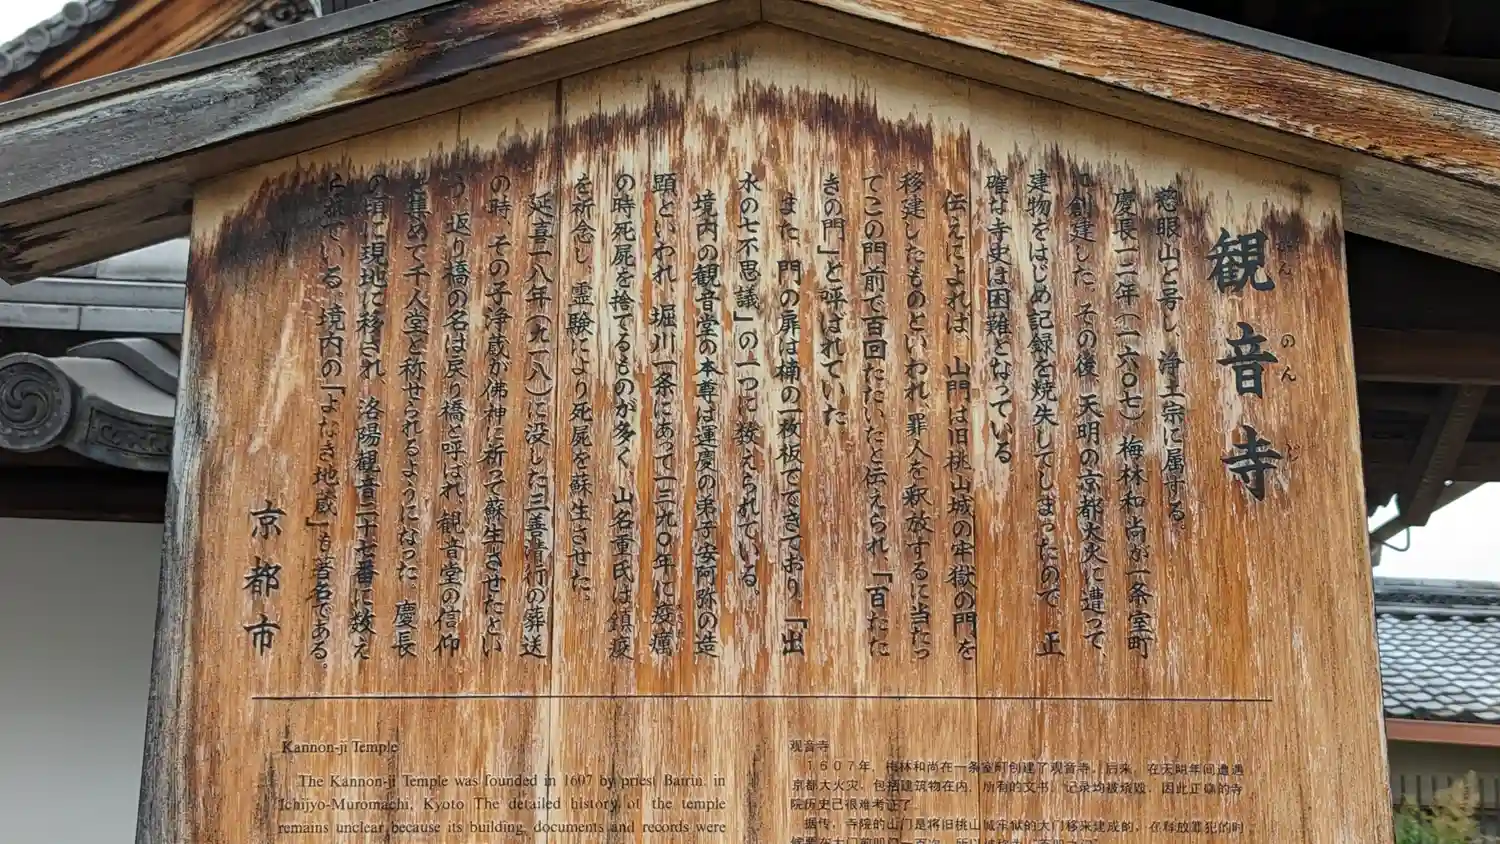 観音寺
かんのんじ
慈眼山と号し、浄土宗に属する。
慶長一二年（一六〇七）梅林和尚が一条室町
に創建した。その後、天明の京都大火に遭って、
建物をはじめ記録を焼失してしまったので、正
確な寺史は困難となっている
伝えによれば、山門は旧桃山城の牢獄の門を
移建したものといわれ、罪人を釈放するに当たっ
てこの門前で百回たたいたと伝えられ、「百たた
きの門」と呼ばれていた
また、門の扉は楠の一枚板でできており、「出
水の七不思議」の一つに数えられている。
境内の観音堂の本尊は運慶の弟子安阿弥の造
顕といわれ、堀川一条にあって一三九〇年に疫癘
の時死屍を捨てるものが多く、山名重氏は鎮疫
を祈念し、霊験により死屍を蘇生させた。
延喜一八年（九一八）に没した三善清行の葬送
の時、その子浄蔵が佛神に祈って蘇生させたとい
う、返り橋の名は戻り橋と呼ばれ、観音堂の信仰
を集めて千人堂と称せられるようになった。慶長
の頃に現地に移され、洛陽観音三十七番に数え
られている。境内の「よなき地蔵」も著名である。
京都市
Kannon-ji Temple
The Kannon-ji Temple was founded in 1607 by priest Bairin. in
Ichijyo-Muromachi, Kyoto The detailed history of the temple
remains unclear because its building, documents and records were
观音寺
1607年，梅林和尚在一条室町创建了观音寺。后来，在天明年间遭遇
京都大火灾，包括建筑物在内，所有的文书、记录均被烧毁，因此正确的寺
院历史已很难考证了
据传，寺院的山门是将旧桃山城牢狱的大门移来建成的，在释放罪犯的时